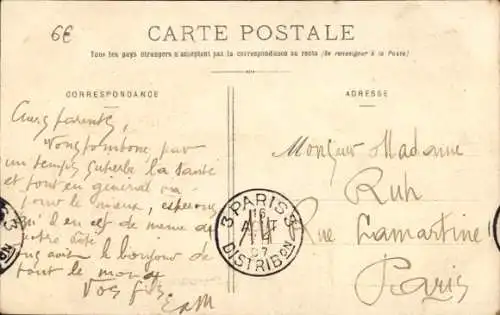 6€
CARTE POSTALE
Tous les pays étrangers n'acceptent pas la correspondance au recto (Se renseigner à la Poste)
CORRESPONDANCE
ADRESSE
parents,
par
un temps superbe la santé
et tout en général va
pour le mieux, espérons
qu'il en est de même de
votre côté
le bonjour de
tout le monde
Vos fils
E & M
Monsieur Madame
Ruh
Rue Lamartine
Paris
3 PARIS 3
16
07
DISTRIBON